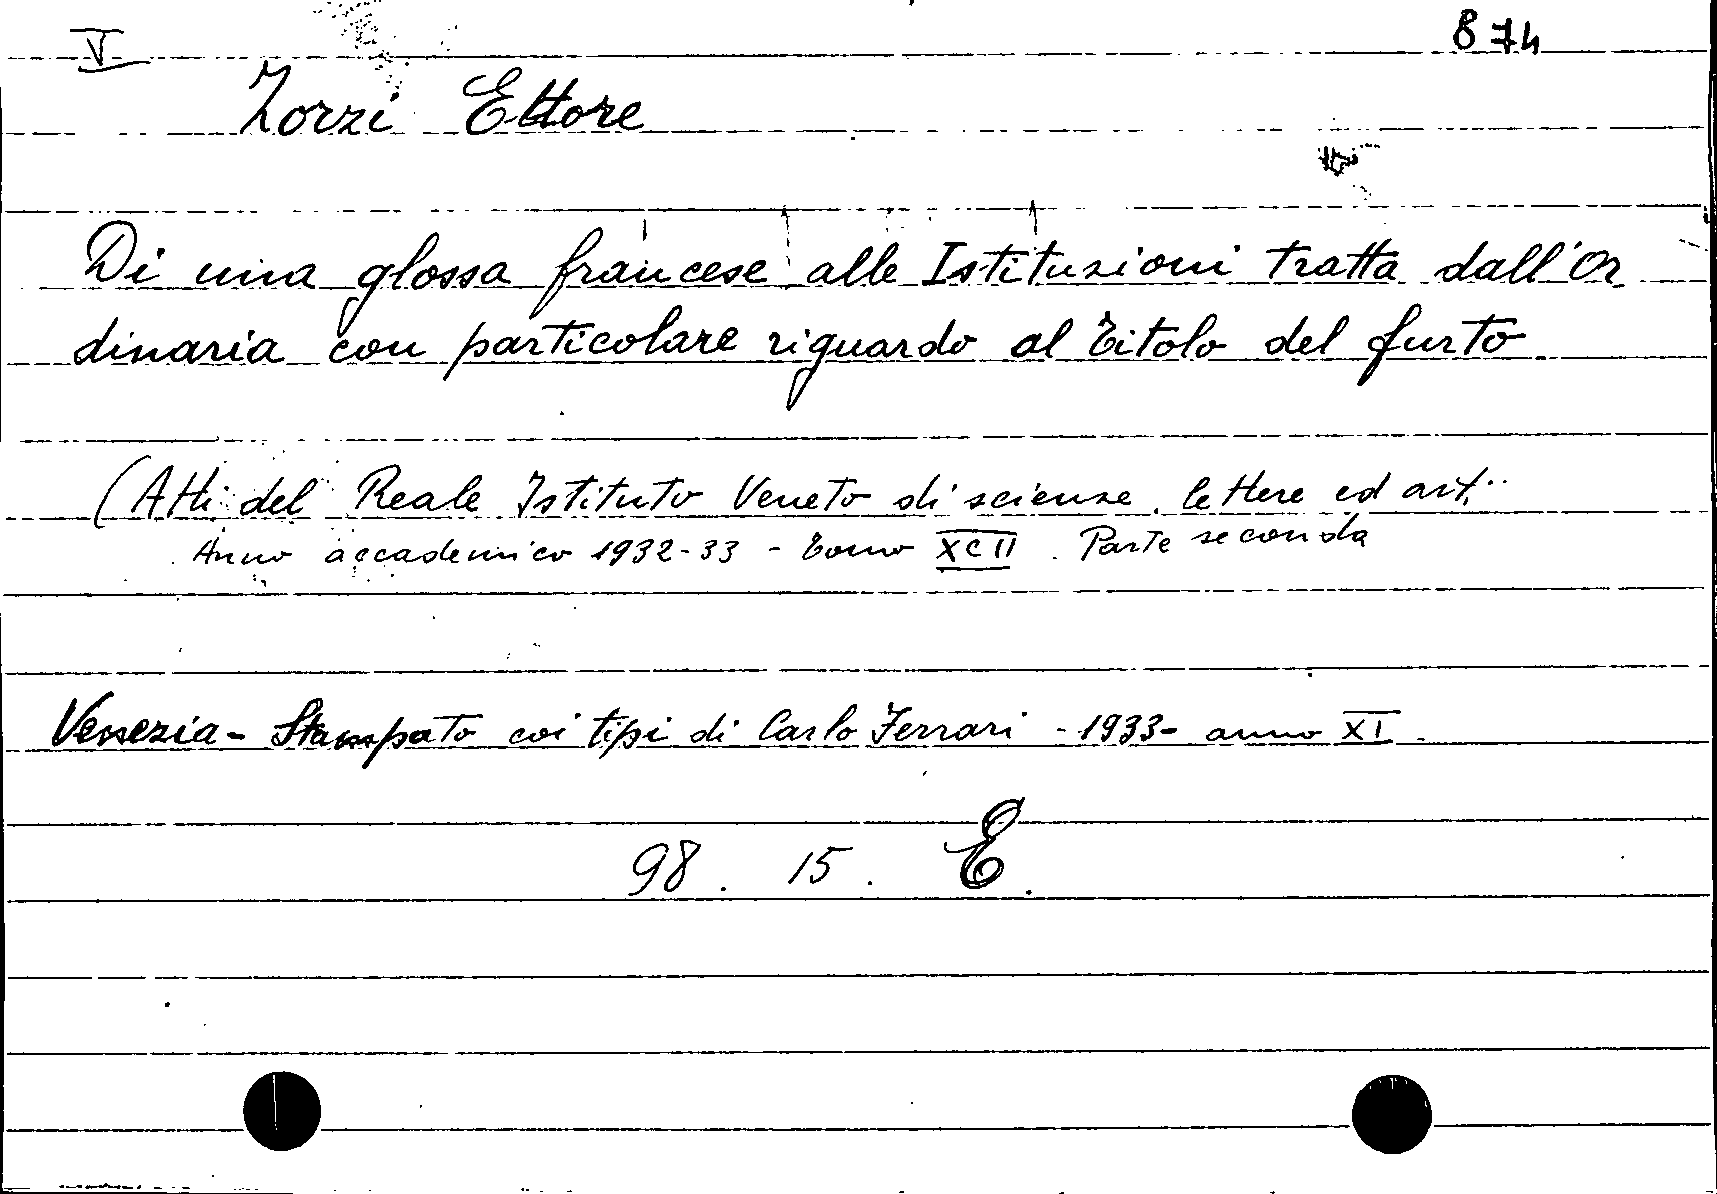 V 874
Zorzi Ettore
Di una glossa francese alle Istituzioni tratta dall'Or
dinaria con particolare riguardo al titolo del furto
(Atti del Reale Istituto Veneto di scienze, lettere ed arti.
Anno accademico 1932-33 - tomo XCII. Parte seconda
Venezia - Stampato coi tipi di Carlo Ferrari - 1933 - anno XI.
98. 15. E.